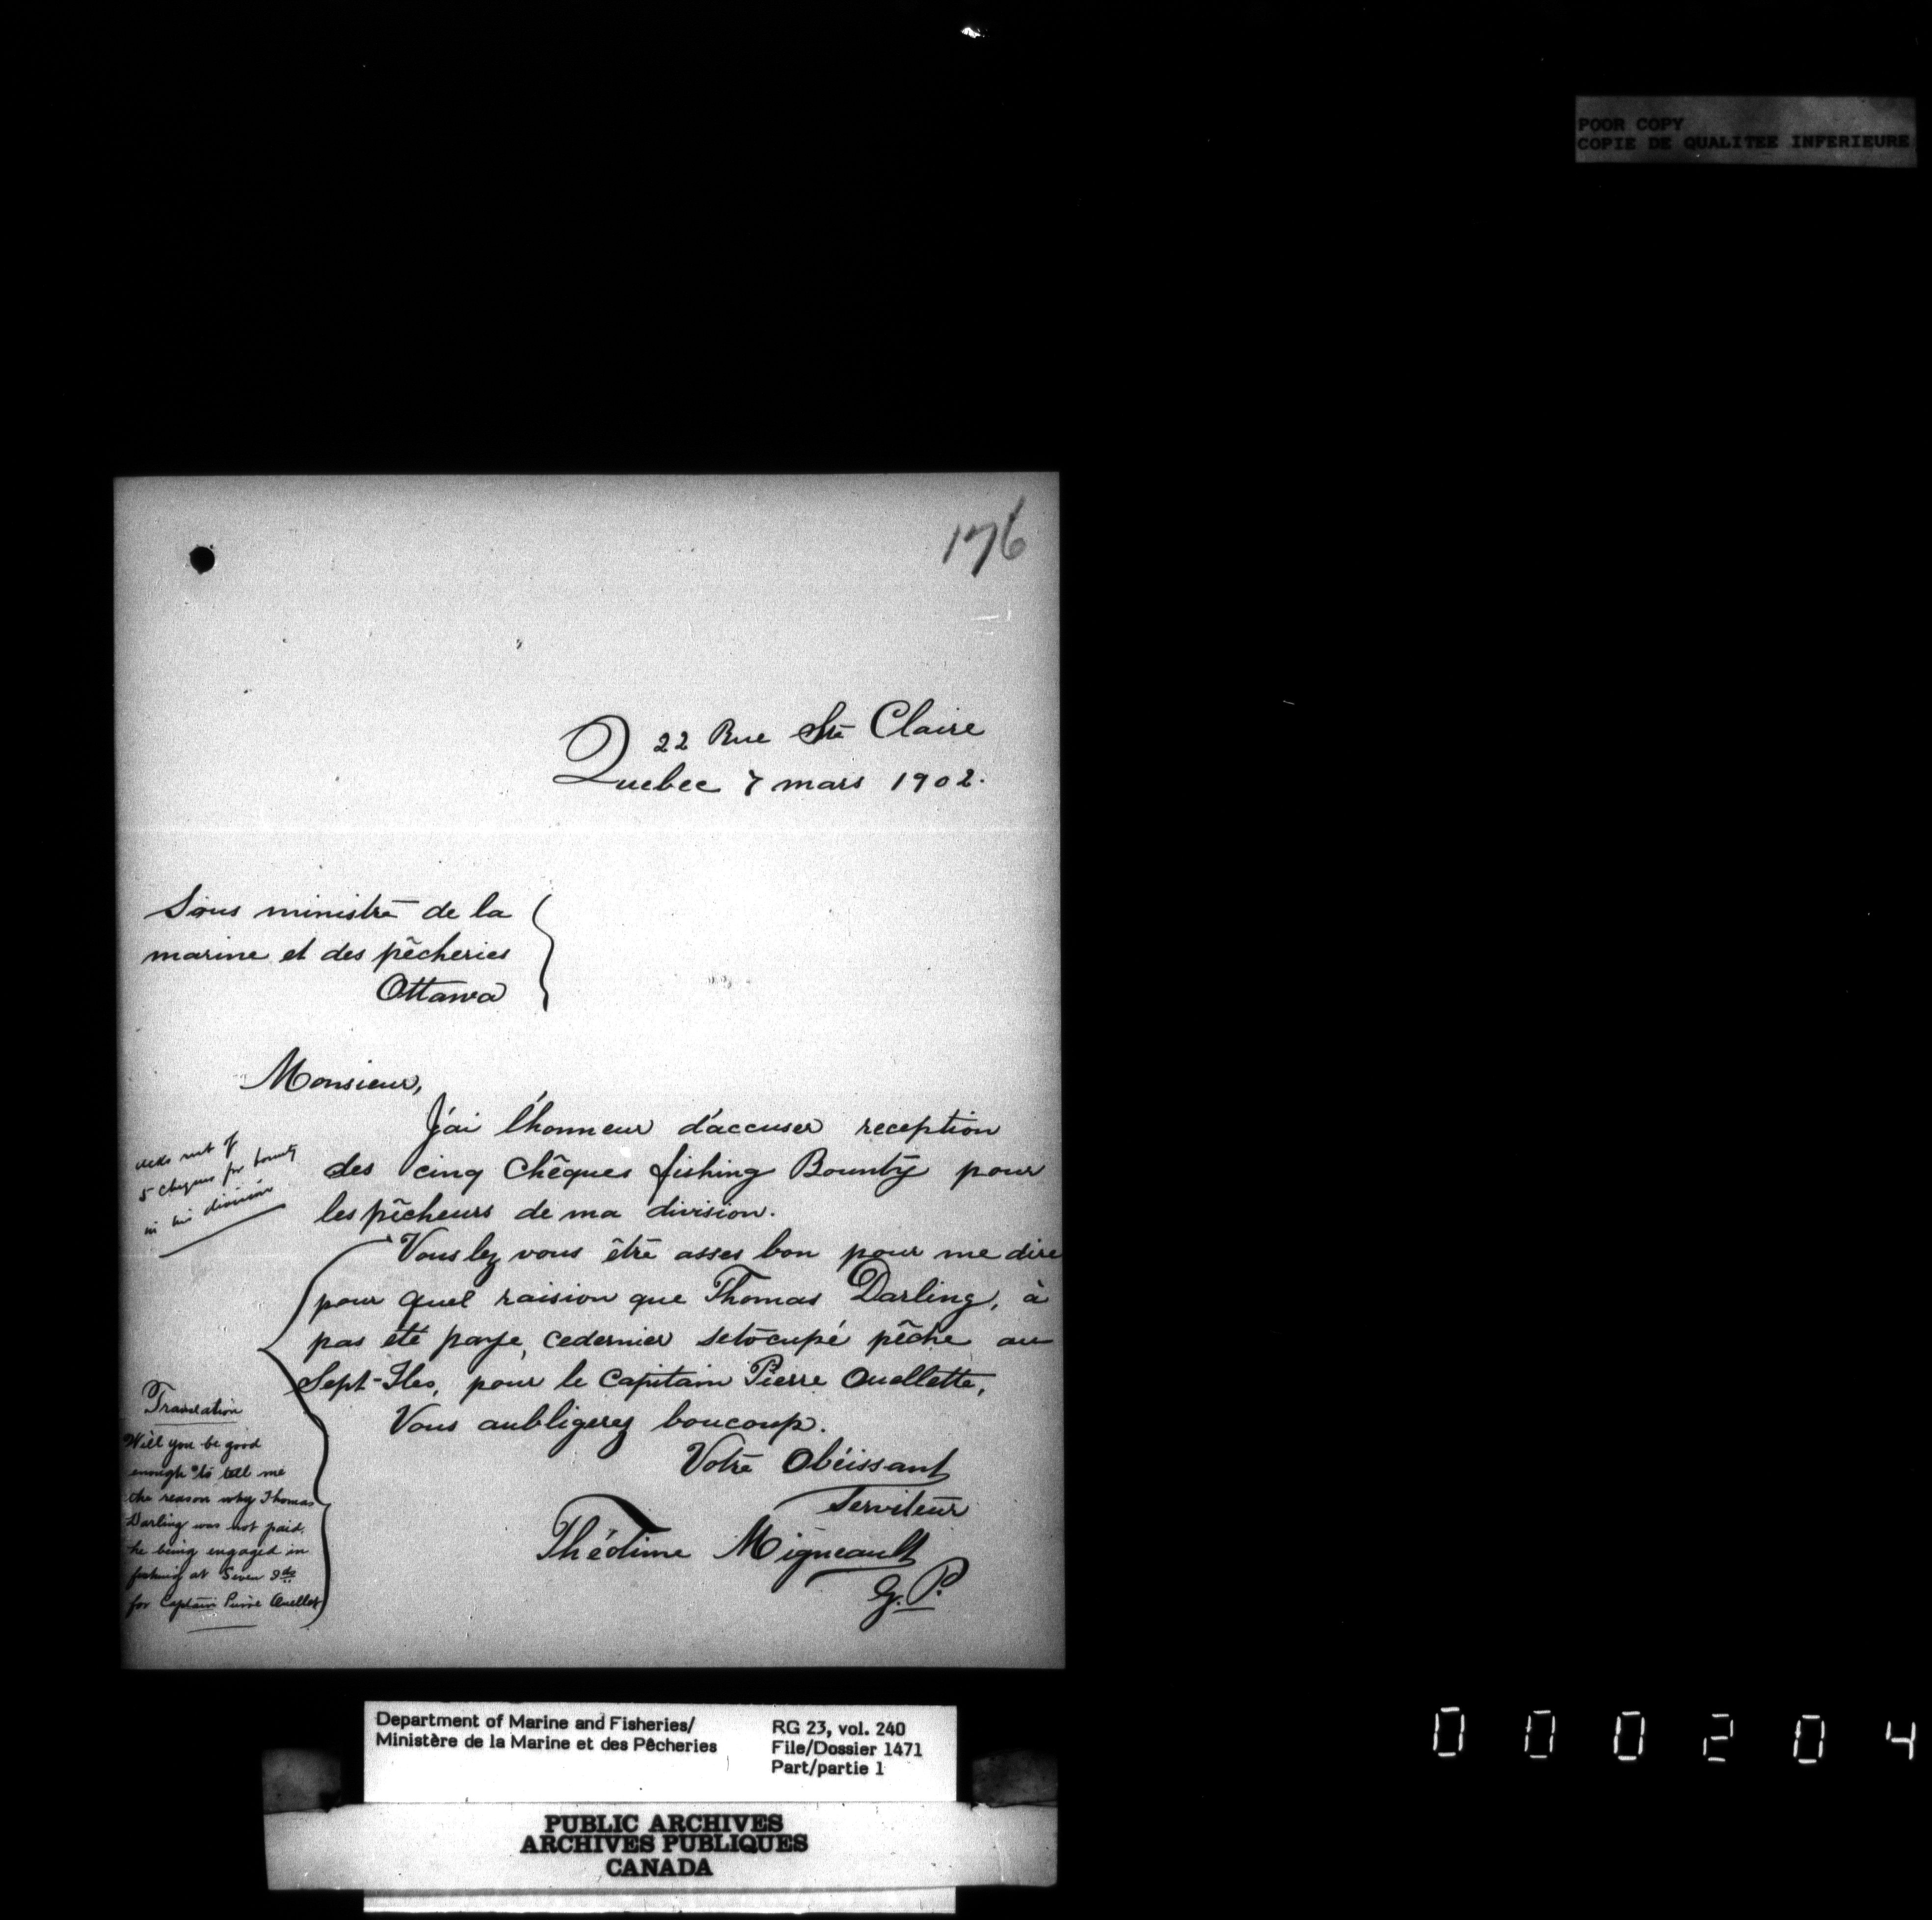 POOR COPY
COPIE DE QUALITEE INFERIEURE
176
22 Rue Ste Claire
Quebec 7 mars 1902.
Sous ministre de la
marine et des pêcheries
Ottawa
Monsieur,
J'ai l'honneur d'accuser reception
des cinq Chêques fishing Bounty pour
les pêcheurs de ma division.
5 cheques for bounty
in his division
Voulez vous être asses bon pour me dire
pour quel raision que Thomas Darling, à
pas été paye, cedernier setocupé pêche au
Sept-Iles, pour le capitain Pierre Ouellette,
Vous aubligerez boucoup.
Votre Obéissant
Serviteur
Théotime Migneault
G. P.
Translation
Will you be good
enough to tell me
the reason why Thomas
Darling was not paid,
he being engaged in
fishing at Seven Ids
for Captain Pierre Ouellet
Department of Marine and Fisheries/
Ministère de la Marine et des Pêcheries
RG 23, vol. 240
File/Dossier 1471
Part/partie 1
PUBLIC ARCHIVES
ARCHIVES PUBLIQUES
CANADA
000204